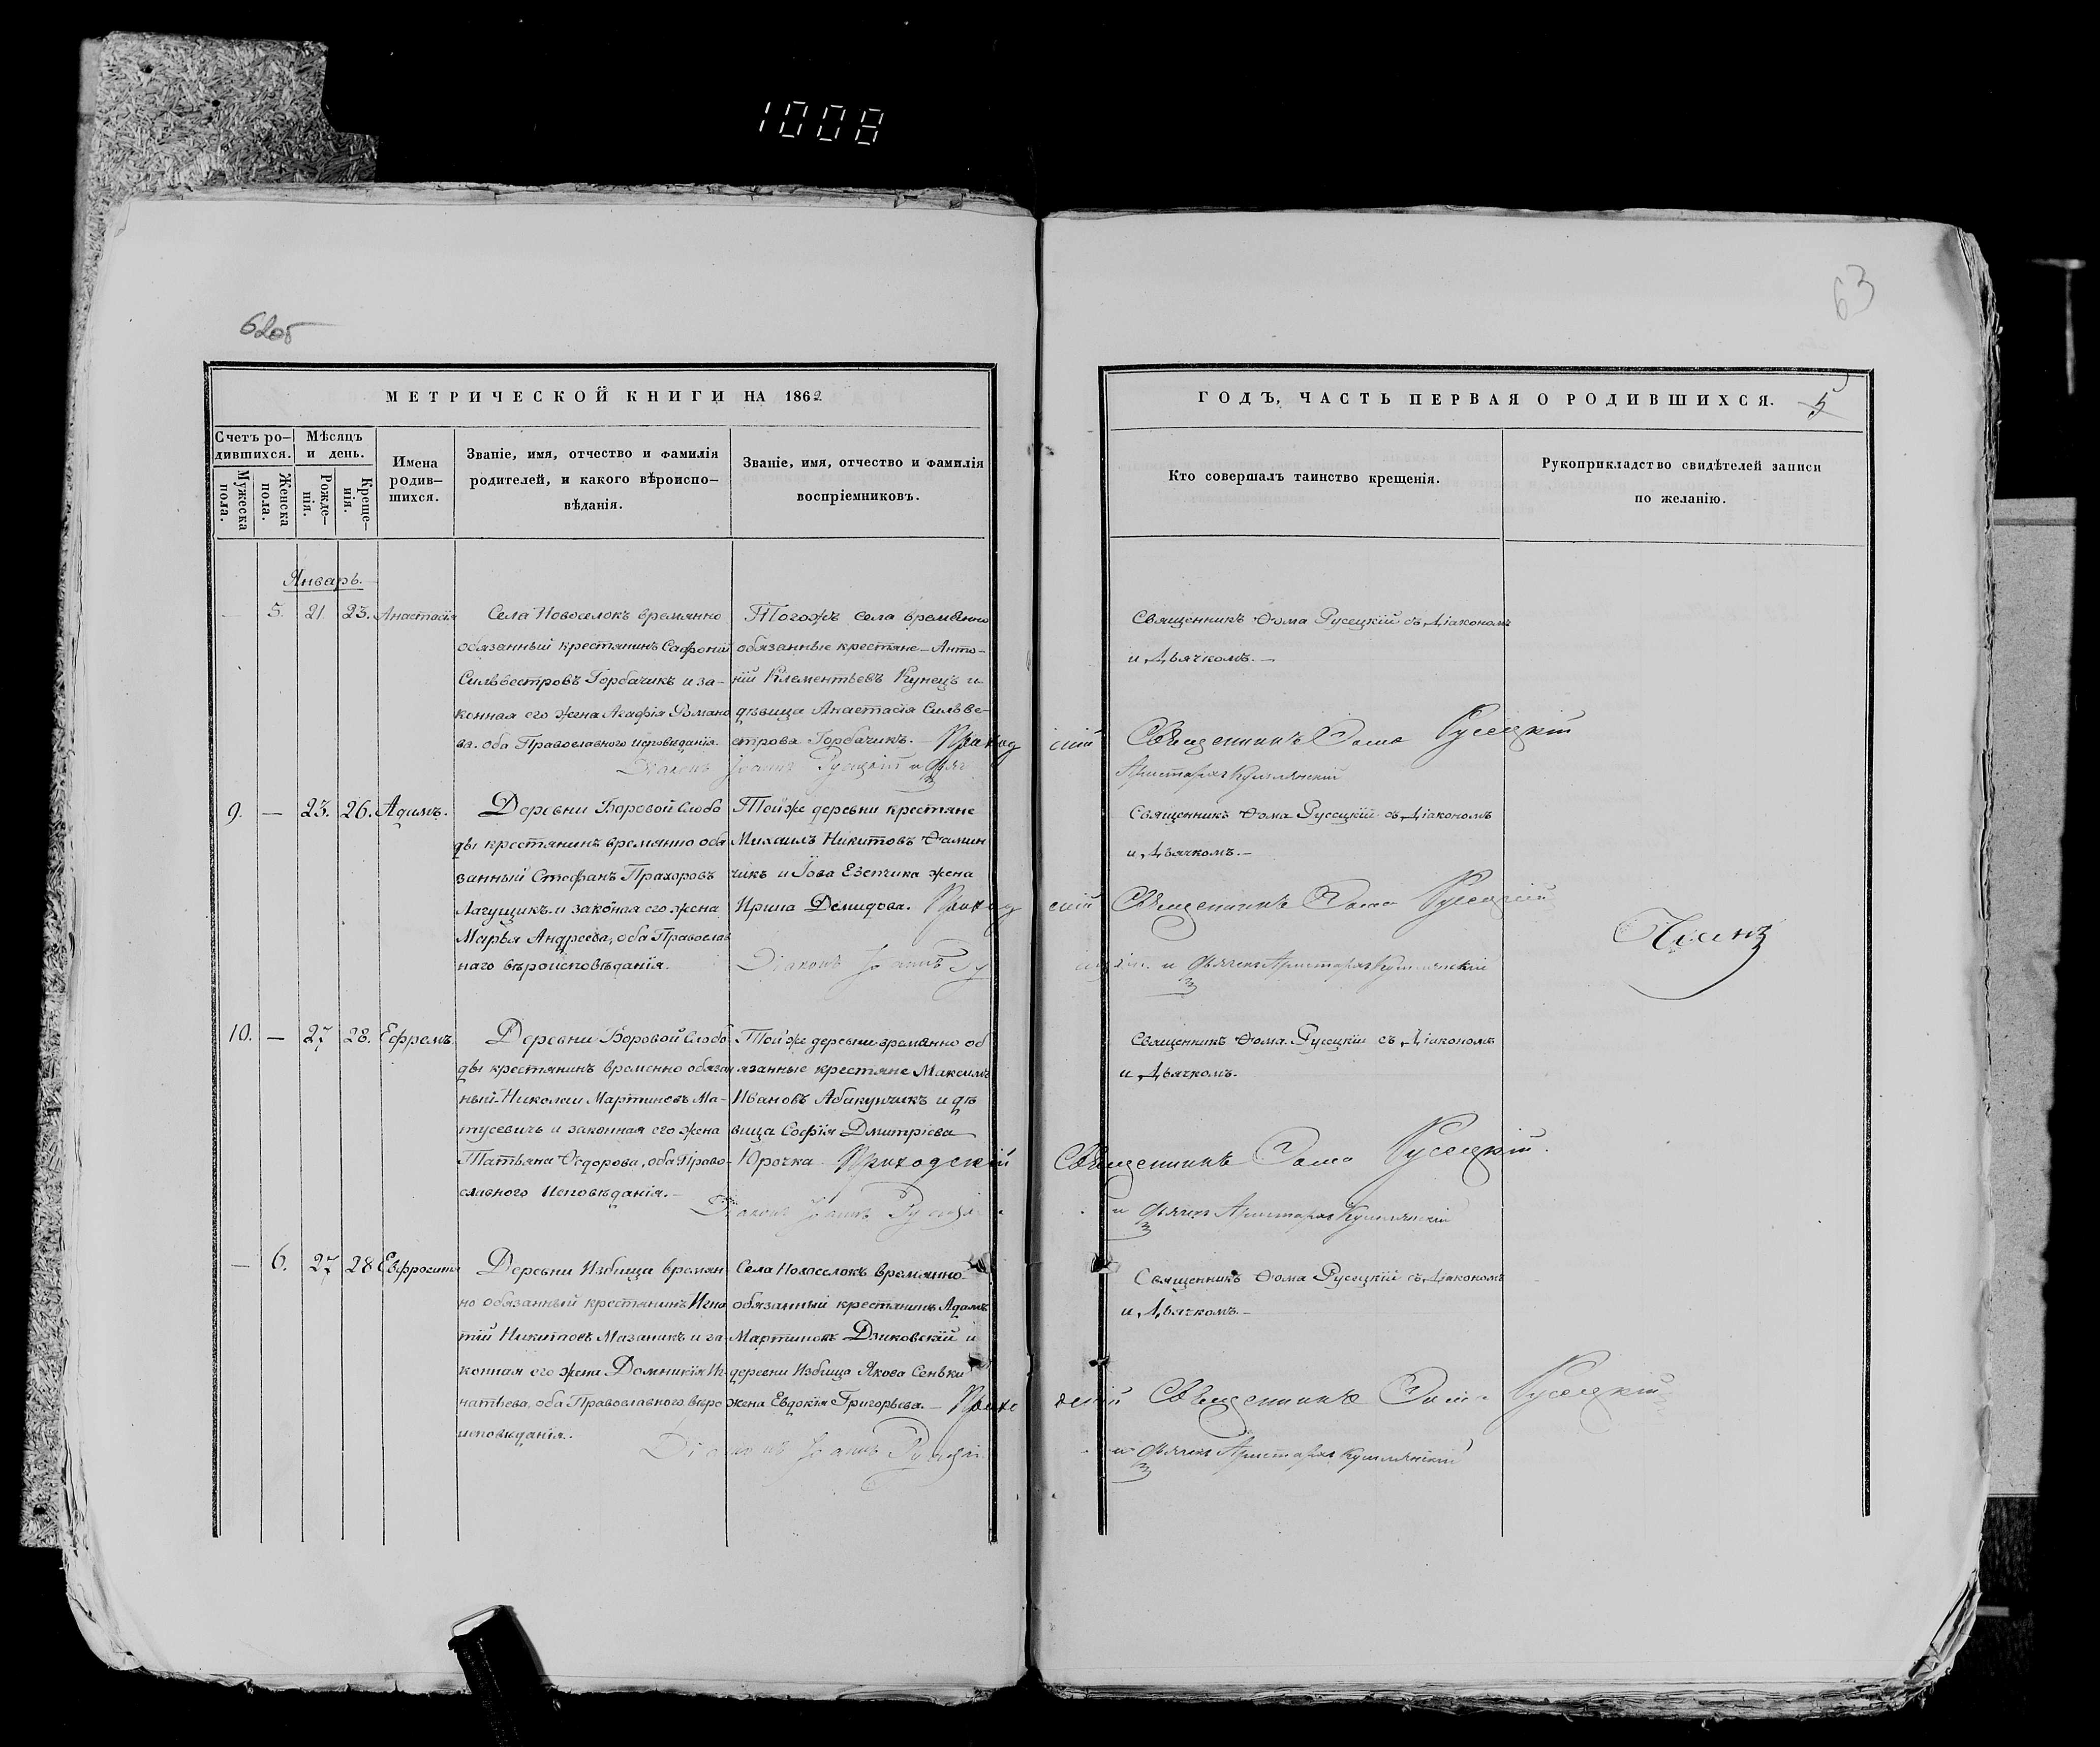 1008
62об
63
МЕТРИЧЕСКОЙ КНИГИ НА 1862
ГОДЪ, ЧАСТЬ ПЕРВАЯ О РОДИВШИХСЯ. 5
Счетъ ро-
дившихся.
Мужеска
пола.
Женска
пола.
Мѣсяцъ
и день.
Рожде-
нія.
Креще-
нія.
Имена
родив-
шихся.
Званіе, имя, отчество и фамилія
родителей, и какого вѣроиспо-
вѣданія.
Званіе, имя, отчество и фамилія
воспріемниковъ.
Кто совершалъ таинство крещенія.
Рукоприкладство свидѣтелей записи
по желанію.
Январь.
— 5. 21. 23. Анастасія
Села Новоселокъ времянно
обязанный крестянинъ Сафоній
Сильвестровъ Горбачикъ и за-
конная его жена Агафія Романо
ва. оба Православного исповѣданія.
Тогожъ села времянно
обязанные крестяне — Анто-
ній Климентьевъ Кунецъ и
дѣвица Анастасія Сильве-
строва Горбачикъ. —
Священникъ Ѳома Русецкій съ Діакономъ
и Дьячкомъ. —
Приходскій Священникъ Ѳома Русецкій
Діаконъ Іоаннъ Русецкій и Дьяч
Аристархъ
9. — 23. 26. Адамъ.
Деревни Боровой Слобо
ды крестянинъ времянно обя
занный Стефанъ Прахоровъ
Лагущикъ и законая его жена
Марья Андреева, оба Православ
наго вѣроисповѣданія.
Тойже деревни крестяне
Михаилъ Никитовъ Ѳамин
чикъ и Іова Езепчика жена
Ирина Демидова.
Священникъ Ѳома Русецкій съ Діакономъ
и Дьячкомъ. —
Приходскій Священникъ Ѳома Русецкій
Діаконъ Іоаннъ Русецкій. и Дьячекъ Аристархъ
10. — 27 28. Ефремъ
Деревни Боровой Слобо
ды крестянинъ временно обязан
ный Николай Мартиновъ Ма-
тусевичъ и законная его жена
Татьяна Ѳедорова, оба Право-
славного Исповѣданія. —
Тойже деревни времянно об
язанные крестяне Максимъ
Ивановъ Абакунчикъ и дѣ
вица Софія Дмитріева
Юрочка
Священникъ Ѳома Русецкій съ Діакономъ
и Дьячкомъ.
Приходскій Священникъ Ѳома Русецкій.
Діаконъ Іоаннъ Русецкій и Дьячекъ Аристархъ
— 6. 27 28 Евфросинія
Деревни Избища времян
но обязанный крестянинъ Игна
тій Никитовъ Мазаникъ и за-
конная его жена Домникія Иг
натьева, оба Православного вѣро
исповѣданія.
Села Новоселокъ времянно
обязанный крестянинъ Адамъ
Мартиновъ Дзиковскій и
деревни Избища Якова Сеньки
жена Евдокія Григорьева. —
Священникъ Ѳома Русецкій съ Діакономъ
и Дьячкомъ. —
Священникъ Ѳома Русецкій
Діаконъ Іоаннъ Русецкій и Дьячекъ Аристархъ